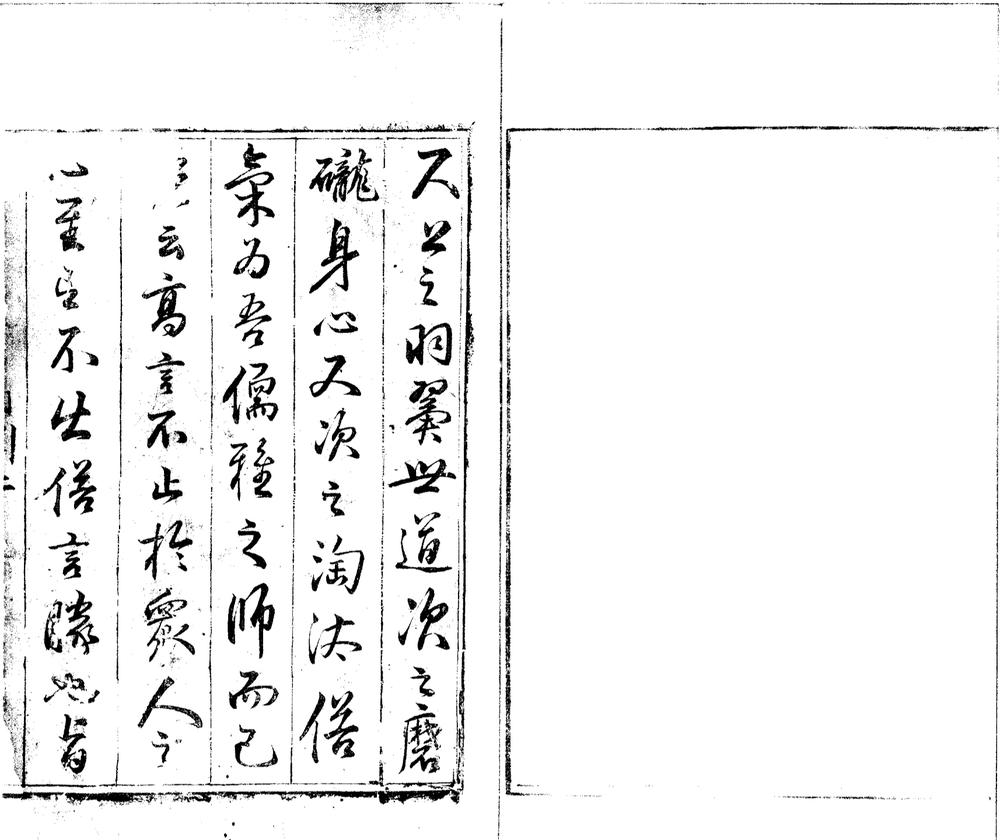 又上之羽翼世道次之磨
礲身心又次之淘汰俗
為吾儒雅之師而已
云高言不止於衆人之
心至言不出俗言勝也旨